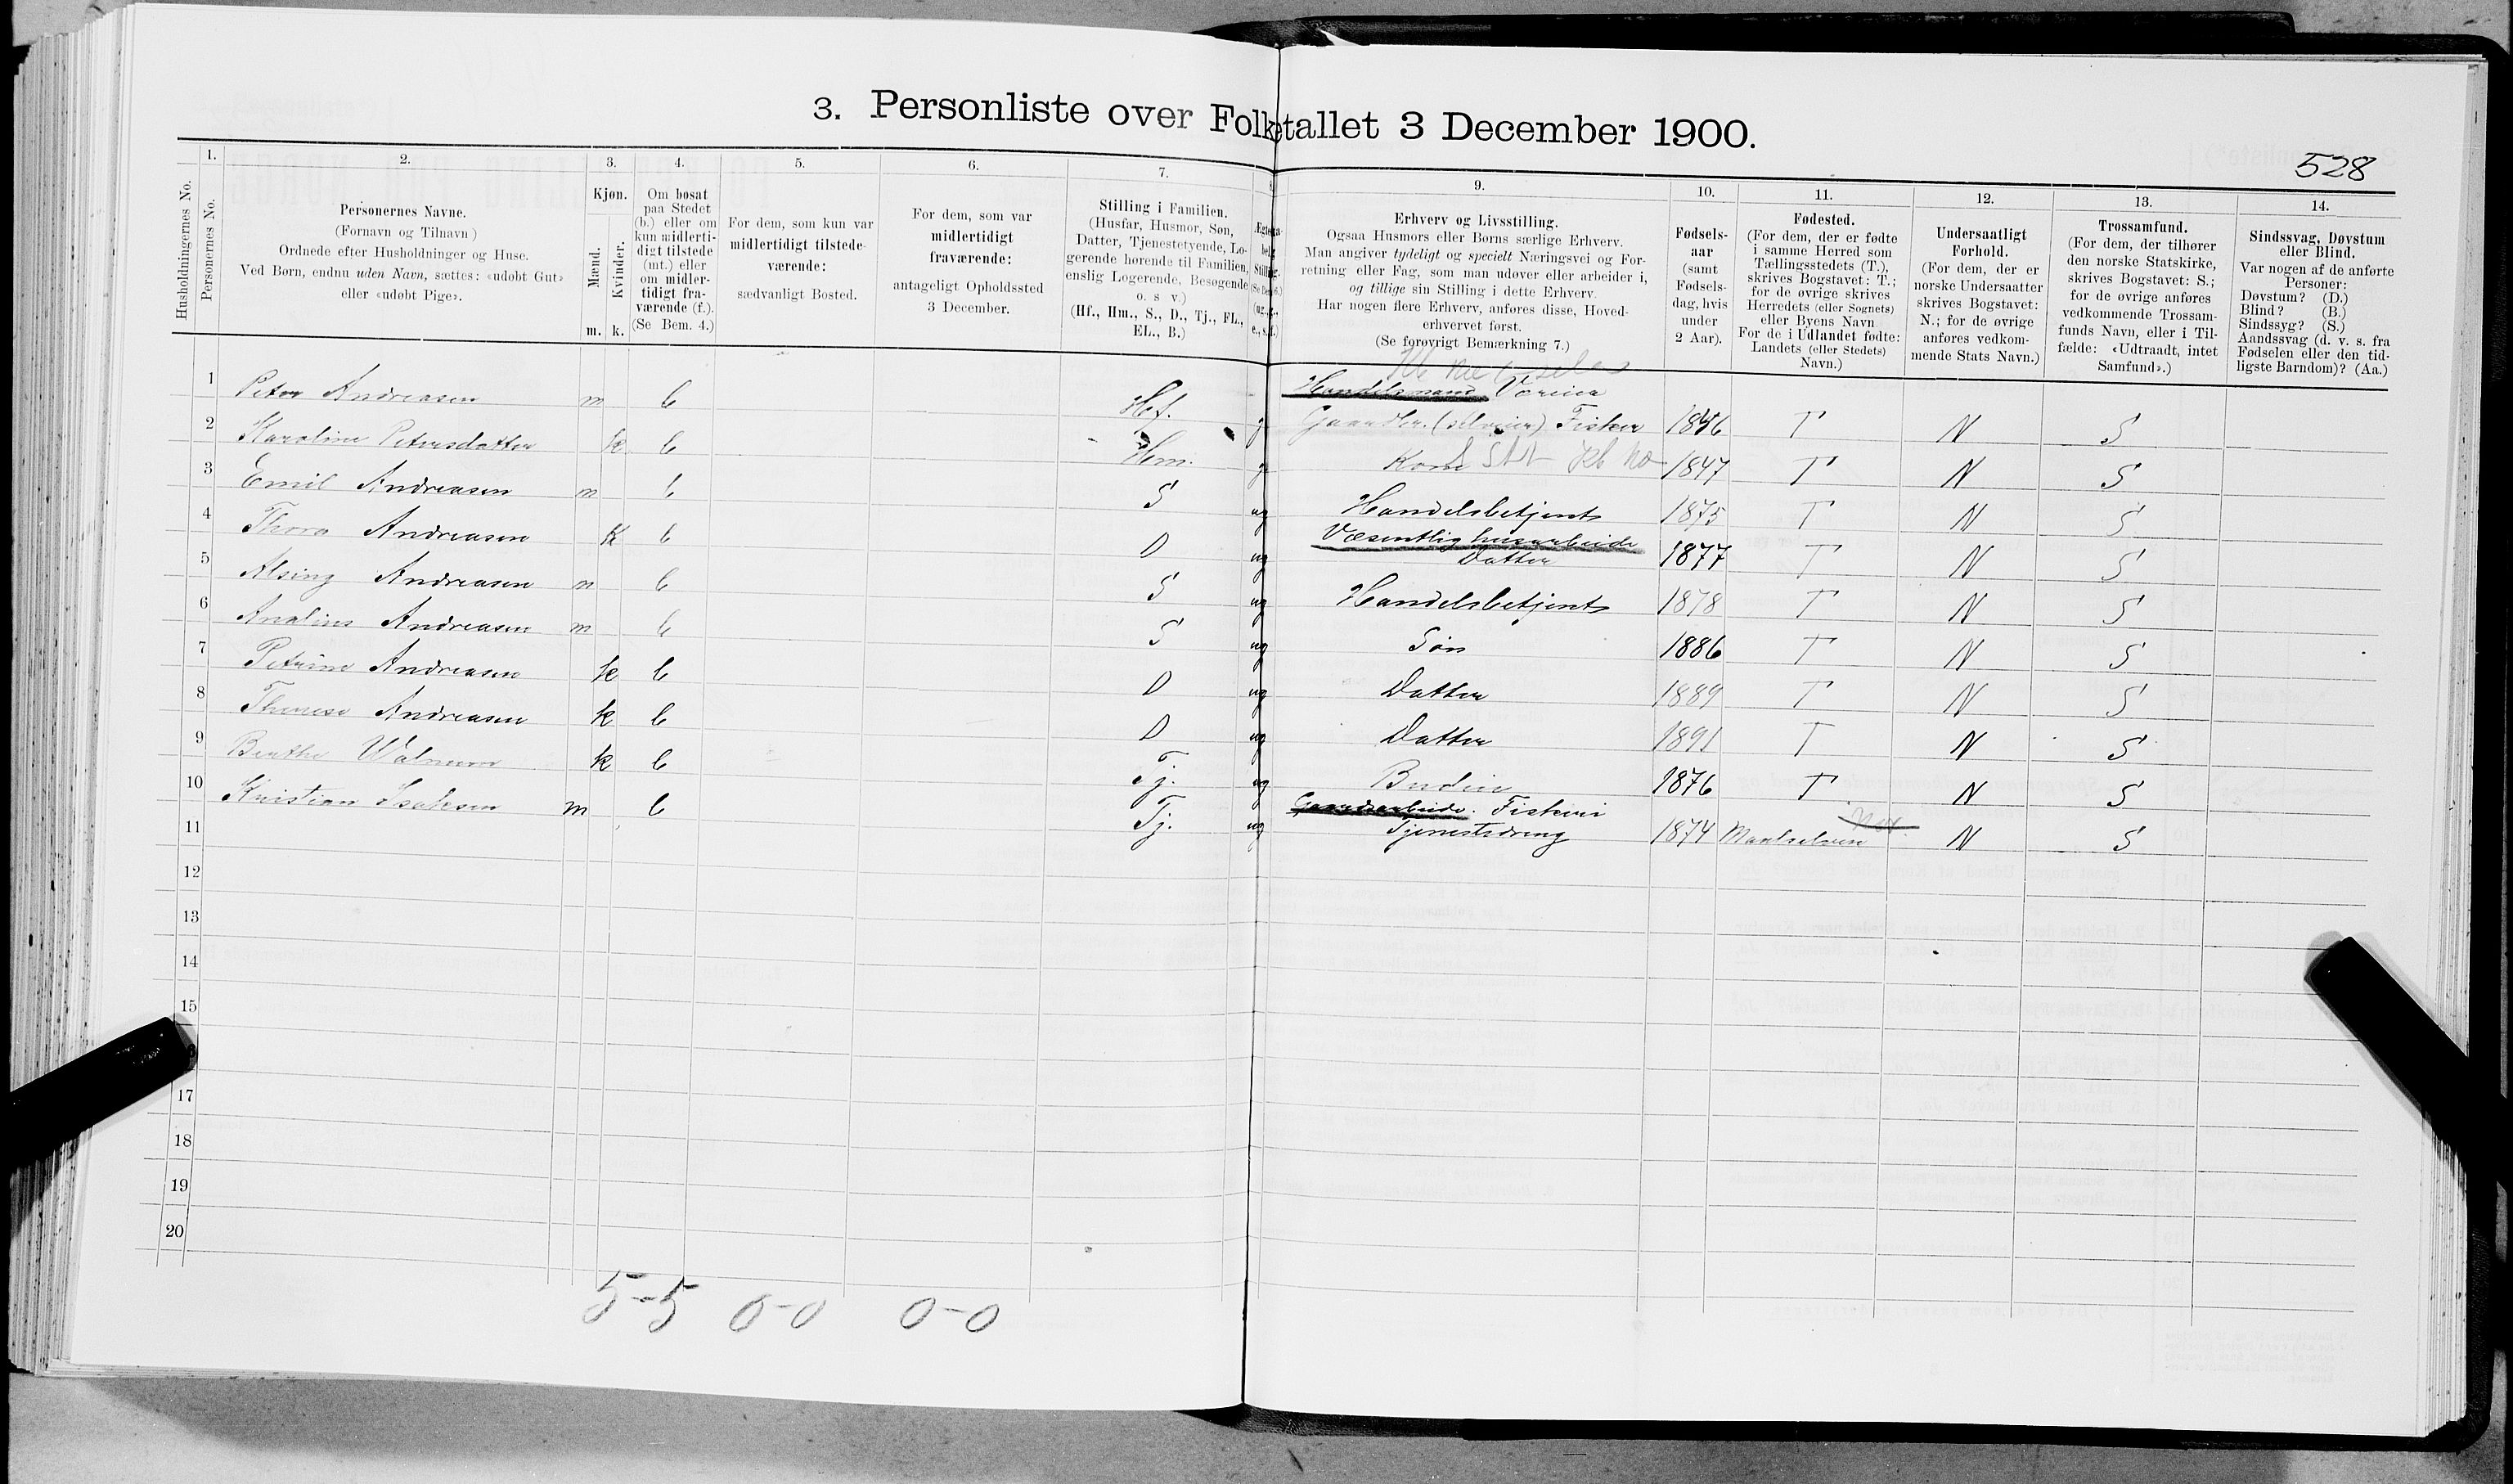 3. Personliste over Folketallet 3 December 1900.
528
1. 2. 3. 4. 5. 6. 7. 9. 10. 11. 12. 13. 14.
Husholdningernes No.
Personernes No.
Personernes Navne.
(Fornavn og Tilnavn)
Ordnede efter Husholdninger og Huse.
Ved Børn, endnu uden Navn, sættes: «udøbt Gut»
eller «udøbt Pige».
Kjøn.
Mænd.
Kvinder.
m. k.
Om bosat
paa Stedet
(b.) eller om
kun midlerti-
digt tilstede
(mt.) eller
om midler-
tidigt fra-
værende (f.).
(Se Bem. 4.)
For dem, som kun var
midlertidigt tilstede-
værende:
sædvanligt Bosted.
For dem, som var
midlertidigt
fraværende:
antageligt Opholdssted
3 December.
Stilling i Familien.
(Husfar, Husmor, Søn,
Datter, Tjenestetyende, Lo-
gerende hørende til Familien,
enslig Logerende, Besøgende
o. s v.)
(Hf., Hm., S., D., Tj., FL.,
EL., B.)
Erhverv og Livsstilling.
Ogsaa Husmors eller Børns særlige Erhverv.
Man angiver tydeligt og specielt Næringsvei og For-
retning eller Fag, som man udøver eller arbeider i,
og tillige sin Stilling i dette Erhverv.
Har nogen flere Erhverv, anføres disse, Hoved-
erhvervet først.
(Se forøvrigt Bemærkning 7.)
Fødsels-
aar
(samt
Fødsels-
dag, hvis
under
2 Aar).
Fødested.
(For dem, der er fødte
i samme Herred som
Tællingsstedets (T.),
skrives Bogstavet: T.;
for de øvrige skrives
Herredets (eller Sognets)
eller Byens Navn.
For de i Udlandet fødte:
Landets (eller Stedets)
Navn.)
Undersaatligt
Forhold.
(For dem, der er
norske Undersaatter
skrives Bogstavet:
N.; for de øvrige
anføres vedkom-
mende Stats Navn.)
Trossamfund.
(For dem, der tilhører
den norske Statskirke,
skrives Bogstavet: S.;
for de øvrige anføres
vedkommende Trossam-
funds Navn, eller i Til-
fælde: «Udtraadt, intet
Samfund».)
Sindssvag, Døvstum
eller Blind.
Var nogen af de anførte
Personer:
Døvstum? (D.)
Blind? (B.)
Sindssyg? (S.)
Aandssvag (d. v. s. fra
Fødselen eller den tid-
ligste Barndom)? (Aa.)
Handelsmand
1 Peter Andreasen m b Hf. g Gaardbr. (selveier) Fisker 1846 T N S
2 Karoline Petersdatter k b Hm. g Kone 1847 T N S
3 Emil Andreasen m b S ug Handelsbetjent 1875 T N S
Væsentlig husarbeide
4 Thora Andreasen k b D ug Datter 1877 T N S
5 Alsing Andreasen m b S ug Handelsbetjent 1878 T N S
6 Analius Andreasen m b S ug Søn 1886 T N S
7 Petrine Andreasen k b D ug Datter 1889 T N S
8 Therese Andreasen k b D ug Datter 1891 T N S
9 Berthe k b Tj. ug Budeie 1876 T N S
Gaardsarbeide. Fiskeri
10 Kristian Isaksen m b Tj. ug Tjenestedreng 1874 Maalselven N S
11
12
13
14
15
17
18
19
20
5-5 0-0 0-0